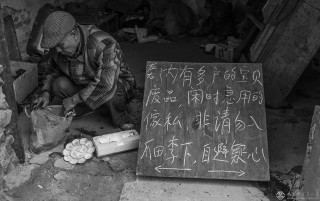 巷内有多产的宝贝
废品 困时急用的
傢私 非请勿入
瓜田李下,自避嫌心